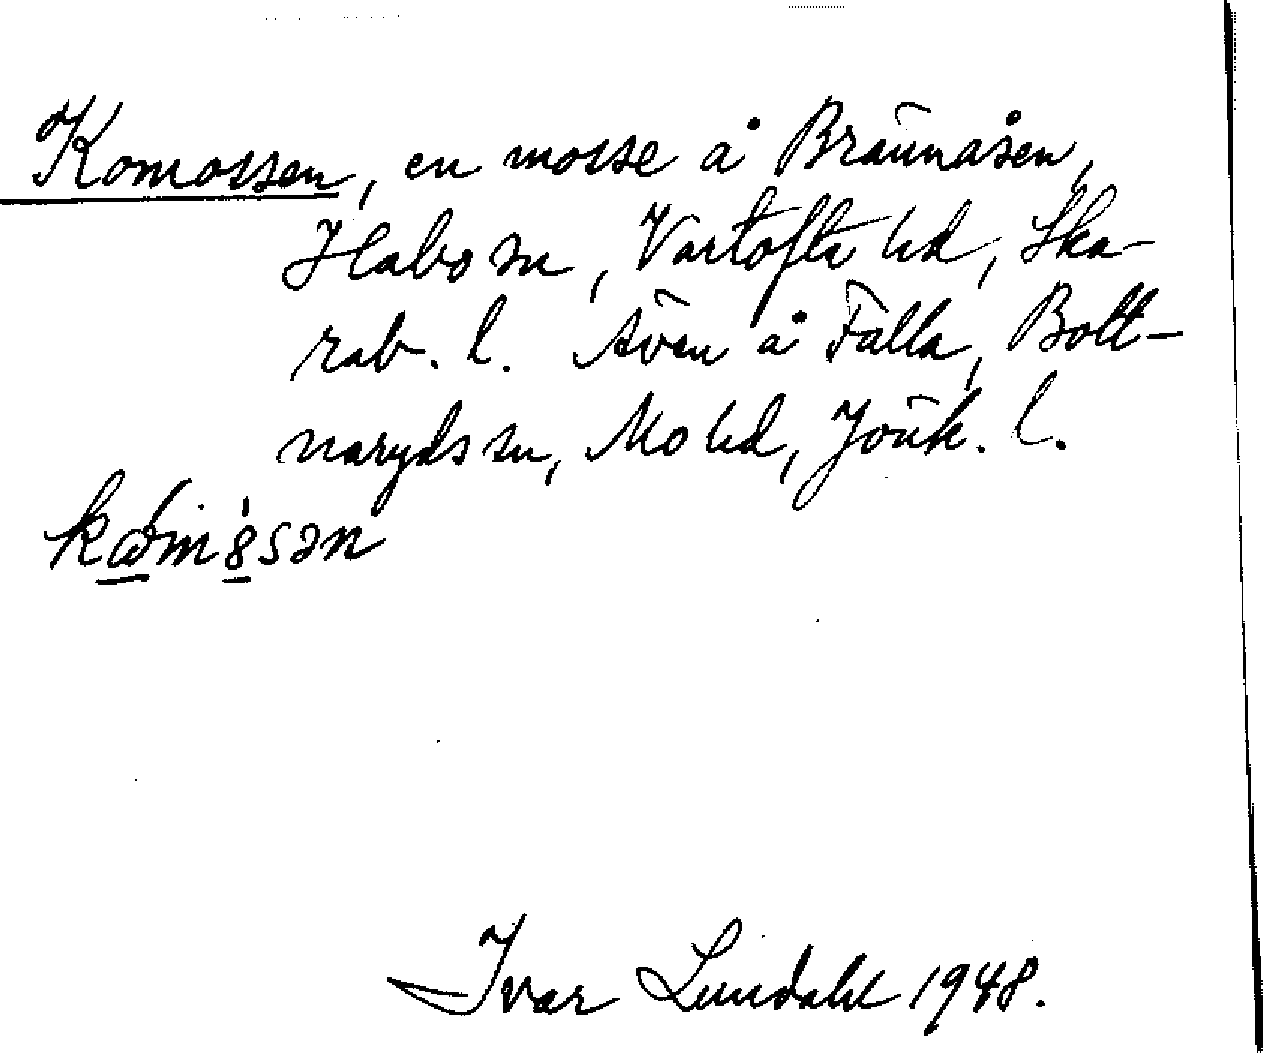 Komossen, en mosse å Brännåsen,
Habo sn, Vartofta hd, Ska-
rab. l. Även å Fälla, Bott-
naryds sn, Mo hd, Jönk. l.
Ivar Lundahl 1948.